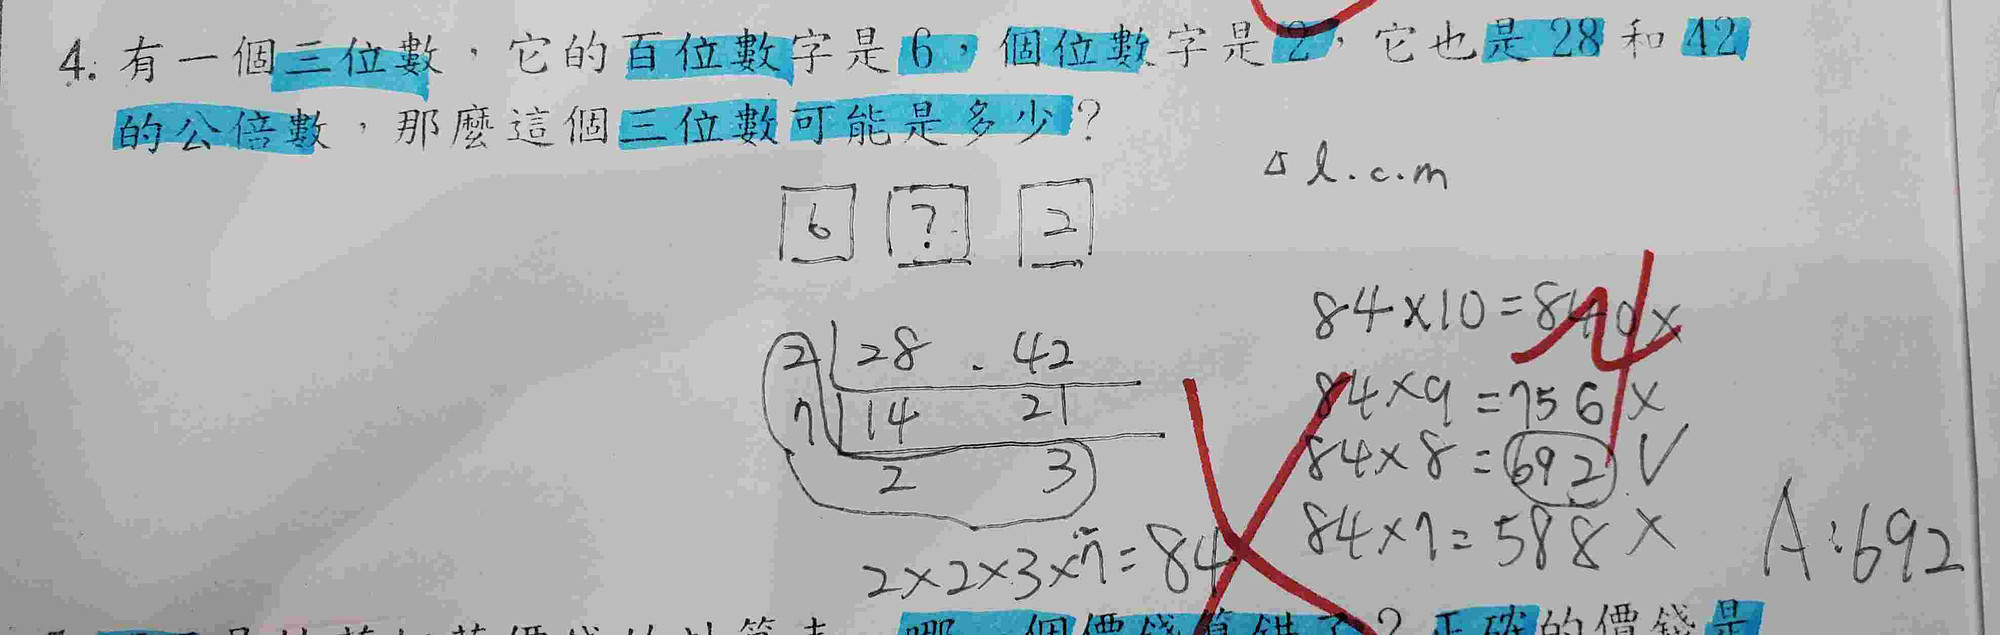 4. 有一個三位數，它的百位數字是6，個位數字是2，它也是28和42
的公倍數，那麼這個三位數可能是多少？
△ l.c.m
6 ? 2
2 28 . 42
7 14 21
2 3
2×2×3×7=84
84×10=840×
84×9=756×
84×8=692 V
84×7=588×
A:692
哪一個價錢算錯了？正確的價錢是